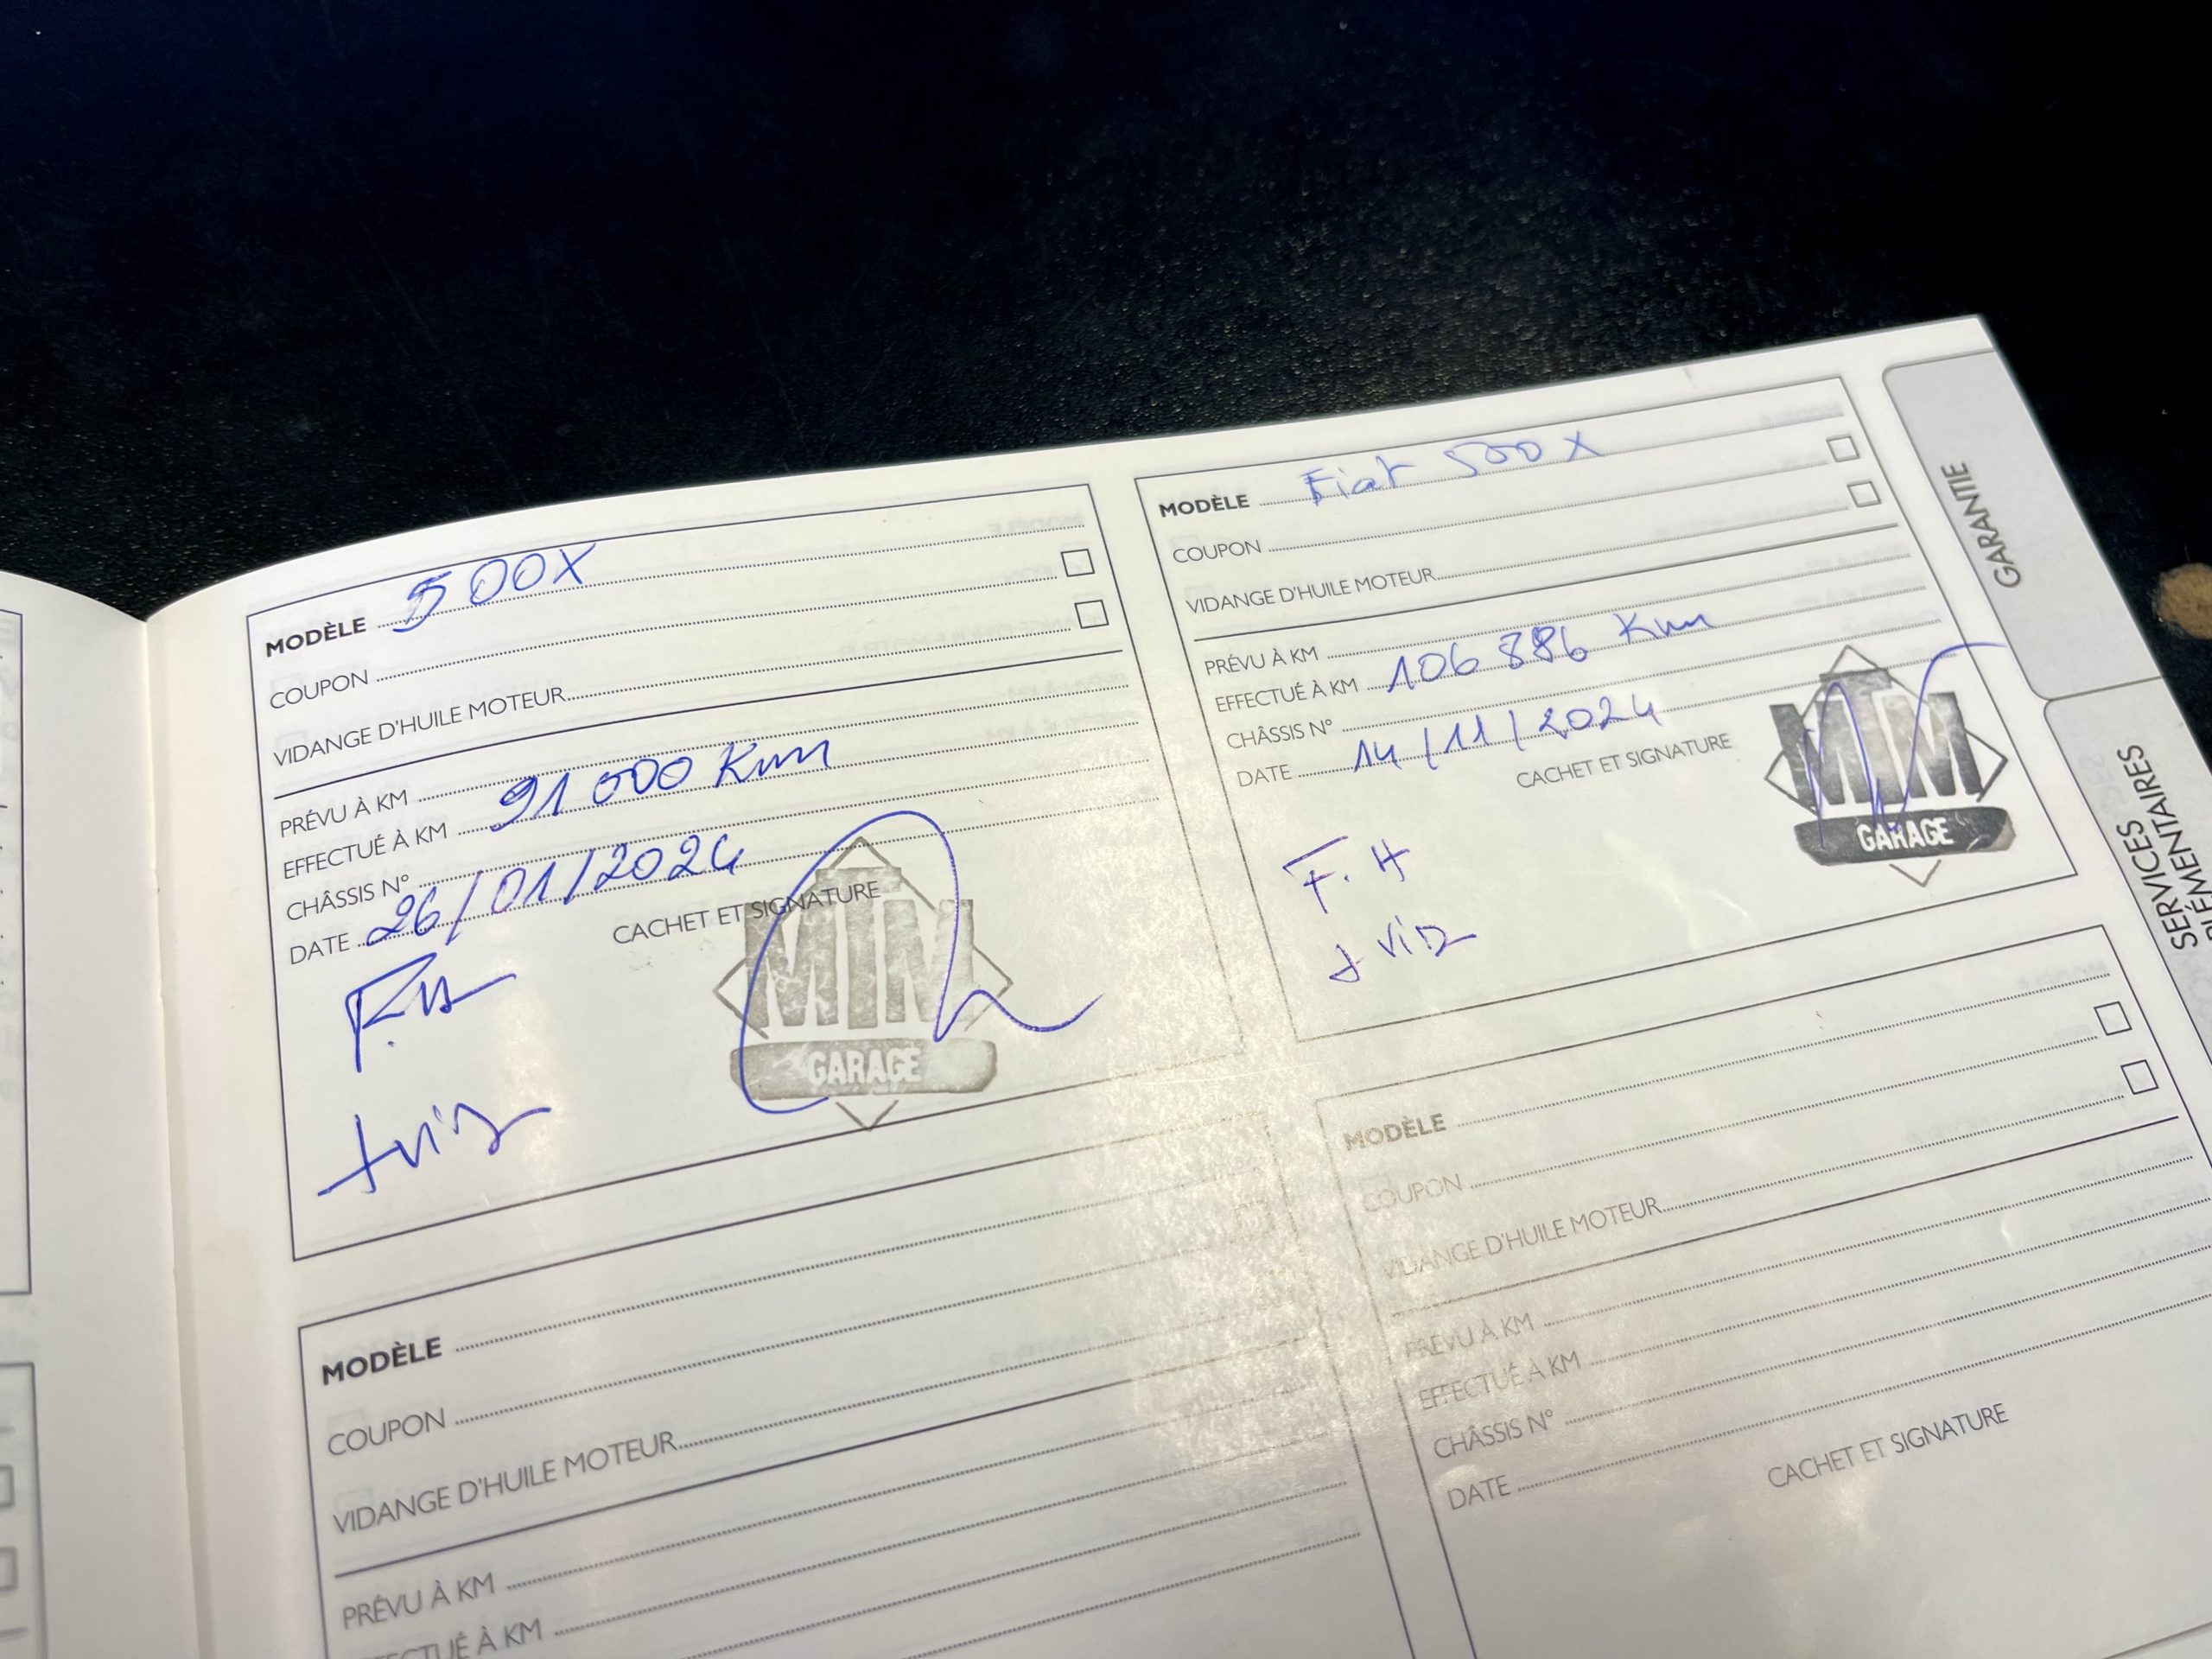 MODÈLE 500X
COUPON
VIDANGE D'HUILE MOTEUR
PRÉVU À KM
EFFECTUÉ À KM 91 000 Km
CHÂSSIS N°
DATE 26/01/2024
CACHET ET SIGNATURE
MIN
GARAGE
MODÈLE Fiat 500 X
COUPON
VIDANGE D'HUILE MOTEUR
PRÉVU À KM
EFFECTUÉ À KM 106 886 Km
CHÂSSIS N°
DATE 14/11/2024
CACHET ET SIGNATURE
MIN
GARAGE
F.H
MODÈLE
COUPON
VIDANGE D'HUILE MOTEUR
PRÉVU À KM
EFFECTUÉ À KM
MODÈLE
COUPON
VIDANGE D'HUILE MOTEUR
PRÉVU À KM
EFFECTUÉ À KM
CHÂSSIS N°
DATE
CACHET ET SIGNATURE
GARANTIE
SERVICES